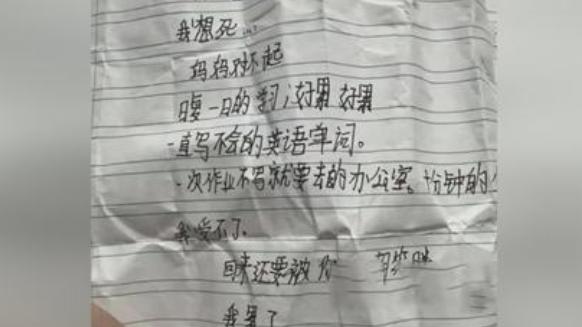 我想死...
妈妈对不起
日复一日的学习,好累 好累
一直写不会的英语单词。
一次作业不写就要去的办公室。十分钟的
我受不了。
回来还要被你
我累了